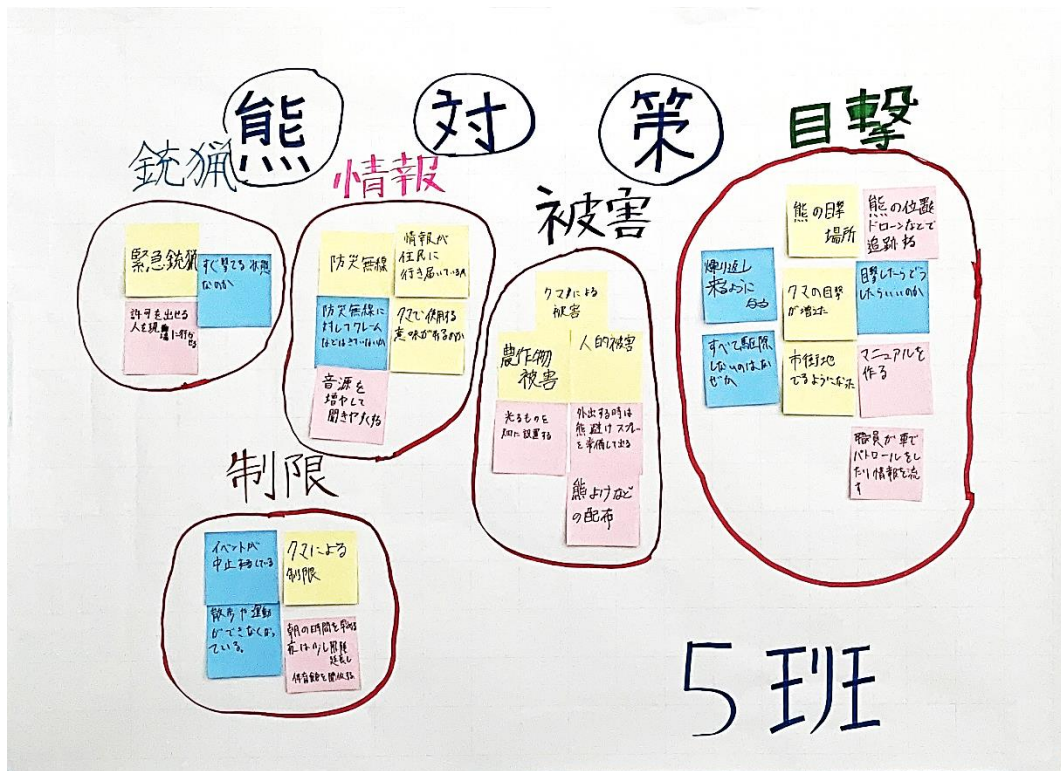 熊対策
銃猟
緊急銃猟
すぐ撃てる状態
なのか
許可を出せる
人を現場に行かせる
情報
防災無線
情報が
住民に
行き届いているか
防災無線に
対してクレーム
などはきていないか
クマで使用する
意味があるのか
音源を
増やして
聞きやすくする
被害
クマによる
被害
農作物
被害
人的被害
光るものを
畑に設置する
外出する時は
熊避けスプレー
を常備して出る
熊よけなど
の配布
目撃
熊の目撃
場所
熊の位置
ドローンなどで
追跡する
繰り返し
来るように
なる
クマの目撃
が増えた
目撃したらどう
したらいいのか
すべて駆除
しないのはな
ぜか
市街地
でるようになった
マニュアルを
作る
職員が車で
パトロールをし
たり情報を流
す
制限
イベントが
中止
クマによる
制限
散歩や運動
ができなくなっ
ている。
朝の時間を
夜は少し
延長し
体育館を開放する
5班